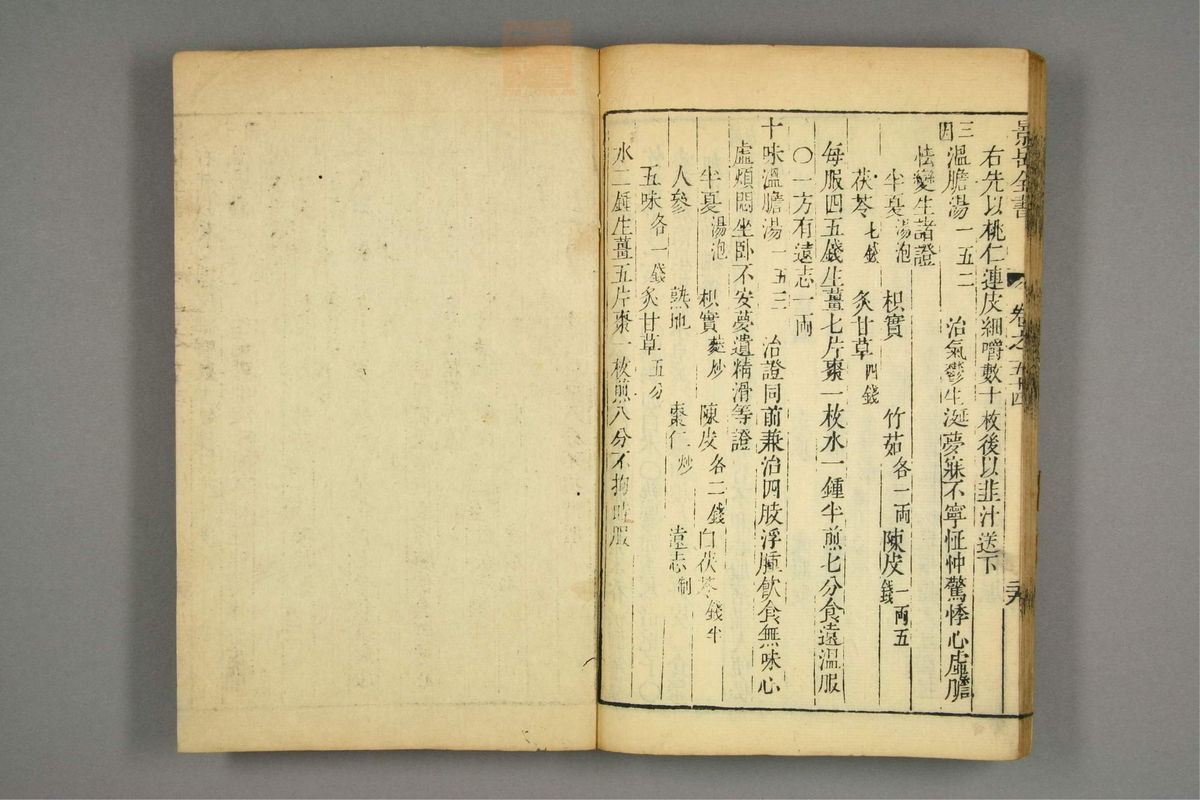 景岳全書 卷之五十四
右先以桃仁連皮細嚼數十枚後以韭汁送下
三因溫膽湯一五二 治氣鬱生涎夢寐不寧怔忡驚悸心虛膽
怯變生諸證
半夏湯泡 枳實 竹茹各一兩 陳皮一兩五錢
茯苓七錢 炙甘草四錢
每服四五錢生薑七片棗一枚水一鍾半煎七分食遠溫服
○一方有遠志一兩
十味溫膽湯一五三 治證同前兼治四肢浮腫飲食無味心
虛煩悶坐臥不安夢遺精滑等證
半夏湯泡 枳實麩炒 陳皮各二錢 白茯苓錢半
人參 熟地 棗仁炒 遠志制
五味各一錢 炙甘草五分
水二鍾生薑五片棗一枚煎八分不拘時服